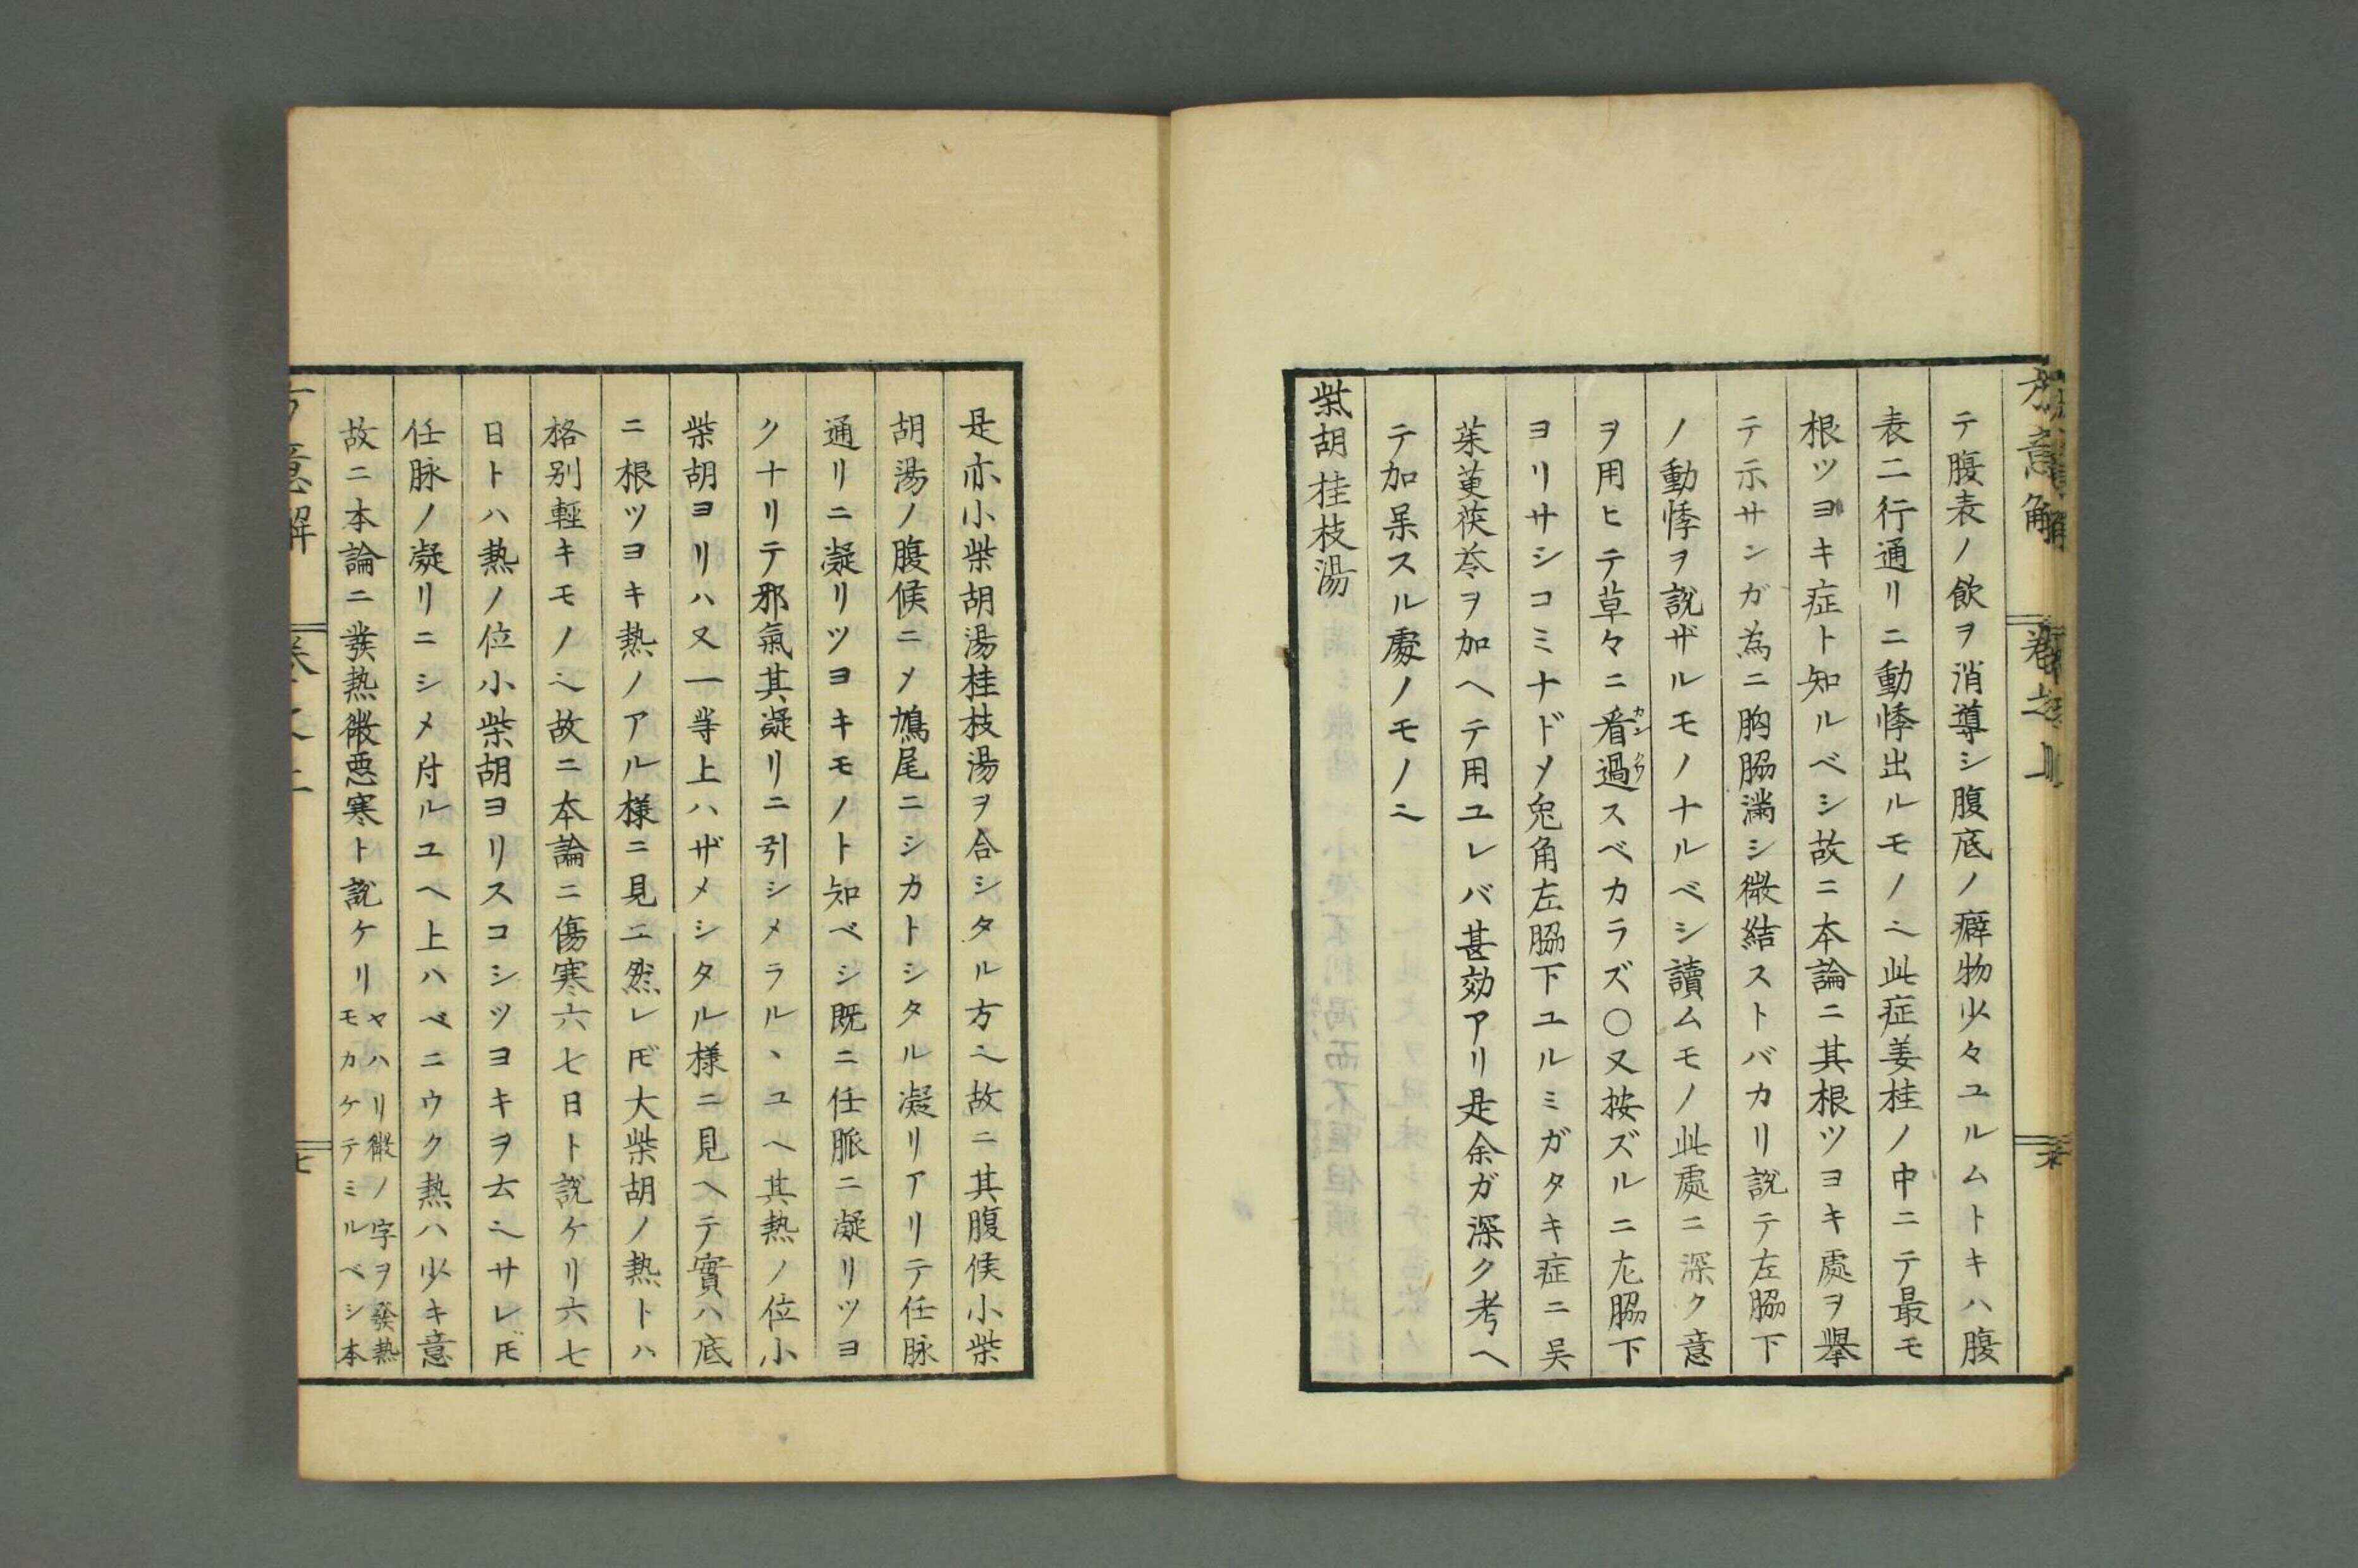 方意解 卷之上
テ腹表ノ飲ヲ消導シ腹底ノ癖物少々ユルムトキハ腹
表二行通リニ動悸出ルモノ𪜈此症姜桂ノ中ニテ最モ
根ツヨキ症ト知ルベシ故ニ本論ニ其根ツヨキ處ヲ擧
テ示サンガ為ニ胸脇滿シ微結ストバカリ説テ左脇下
ノ動悸ヲ説ザルモノナルベシ讀ムモノ此處ニ深ク意
ヲ用ヒテ草々ニ看過スベカラズ○又按ズルニ左脇下
カン クワ
ヨリサシコミナドメ兔角左脇下ユルミガタキ症ニ吴
茱萸茯苓ヲ加ヘテ用ユレバ甚効アリ是余ガ深ク考ヘ
テ加呆スル處ノモノ
柴胡桂枝湯
是亦小柴胡湯桂枝湯ヲ合シタル方 故ニ其腹候小柴
胡湯ノ腹候ニメ鳩尾ニシカトシタル凝リアリテ任脉
通リニ凝リツヨキモノト知ベシ既ニ任脈ニ凝リツヨ
クナリテ邪氣其凝リニ引シメラルヽユヘ其熱ノ位小
柴胡ヨリハ又一等上ハザメシタル様ニ見ヘテ實ハ底
ニ根ツヨキ熱ノアル様ニ見ユ然レ𪜈大柴胡ノ熱トハ
格别輕キモノ 故ニ本論ニ傷寒六七日ト説ケリ六七
日トハ熱ノ位小柴胡ヨリスコシツヨキヲ云 サレ𪜈
任脉ノ凝リニシメ付ルユヘ上ハベニウク熱ハ少キ意
故ニ本論ニ發熱微惡寒ト説ケリ
ヤハリ微ノ字ヲ發熱
モカケテミルベシ本
方意解 卷之上 七